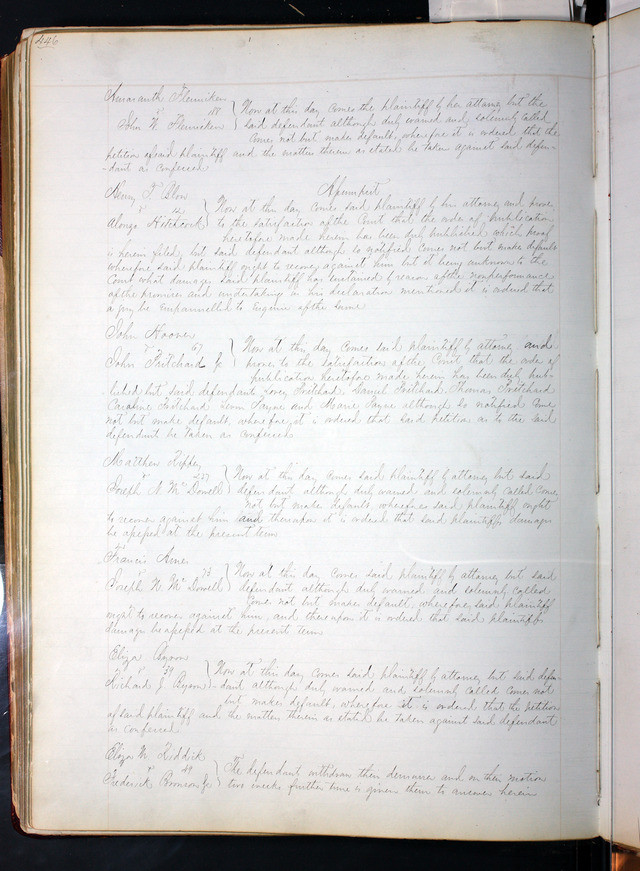 446
Amaranth Flenniken
v 188 } Now at this day comes the plaintiff by her attorney but the
John W Flenniken } said defendant although duly warned and solemnly called
Comes not but makes default, wherefore it is ordered that the
petition of said plaintiff and the matters therein as stated be taken against said defen-
dant as confessed
Henry T. Blow Assumpsit
v 12 } Now at this day comes said plaintiff by his attorney and proves
Alonzo Hitchcock } to the satisfaction of the Court that the order of publication
heretofore made herein has been duly published which proof
is herein filed, but said defendant although so notified comes not but makes default
wherefore said plaintiff ought to recover against him but it being unknown to the
Court what damages said plaintiff has sustained by reason of the nonperformance
of the promises and undertakings in his declaration mentioned it is ordered that
a jury be empannelled to enquire of the same
John Hoover
v 67 } Now at this day comes said plaintiff by attorney and
John Pritchard &c } proves to the satisfaction of the Court that the order of
publication heretofore made herein has been duly pub-
lished but said defendant Lovey Pritchard Samuel Pritchard Thomas Pritchard
Caroline Pritchard Levin Payne and Marie Payne although so notified come
not but make default, wherefore it is ordered that said petition as to the said
defendants be taken as confessed
Matthew Rippey
v 237 } Now at this day comes said plaintiff by attorney but said
Joseph N. McDowell } defendant although duly warned and solemnly called comes
not but makes default wherefore said plaintiff ought
to recover against him and thereupon it is ordered that said plaintiffs damages
be assessed at the present term
Francis Ames
v 73 } Now at this day comes said plaintiff by attorney but said
Joseph N. McDowell } defendant although duly warned and solemnly called
Comes not but makes default, wherefore said plaintiff
ought to recover against him, and thereupon it is ordered that said plaintiffs
damages be assessed at the present term
Eliza Byson
v 39 } Now at this day comes said plaintiff by attorney but said defen-
Richard J. Byson } dant although duly warned and solemnly called comes not
but makes default, wherefore it is ordered that the petition
of said plaintiff and the matters therein as stated be taken against said defendant
as confessed
Eliza W. Riddick
v 49 } The defendants withdraw their demurrer and on their motion
Frederick Bronson &c } two weeks further time is given them to answer herein